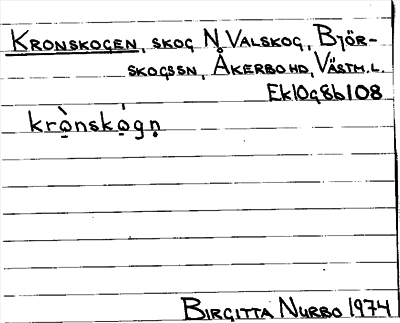 KRONSKOGEN, SKOG N VALSKOG, BJÖR-
SKOGSSN, ÅKERBO HD, VÄSTM.L.
Ek10g8b108
krò̤nskó̤gṇ
BIRGITTA NURBO 1974